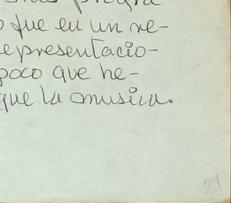 o que en un re-
epresentacio-
poco que he-
que la musica.
24